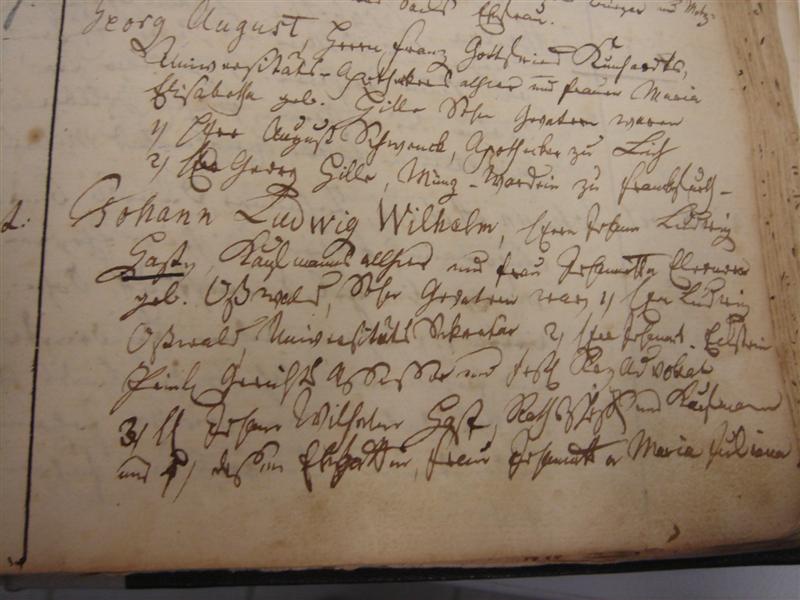 Georg August, Herrn Franz Gottfried Kunhardts,
Universitäts-Apothekers allhier und Frauen Maria
Elisabetha geb. Gille Sohn Gevattern waren
1) Herr August Schwenck, Apotheker zu Lich
2) Herr Georg Gille, Münz-Wardein zu Frankfurth-
2: Johann Ludwig Wilhelm, Herrn Johann Ludwig
Gasts, Kaufmanns allhier und Frau Johannetta
geb. Oßwald, Sohn Gevattern war 1) Herr Ludwig
Oßwald, Universitäts Sekretär 2) Herr
Peinl. Gerichts Assessor und Advokat
3) H Johann Wilhelm Gast, und Kaufmann
und 4) dessen Ehegattin, Frau Johannetta Maria Juliana